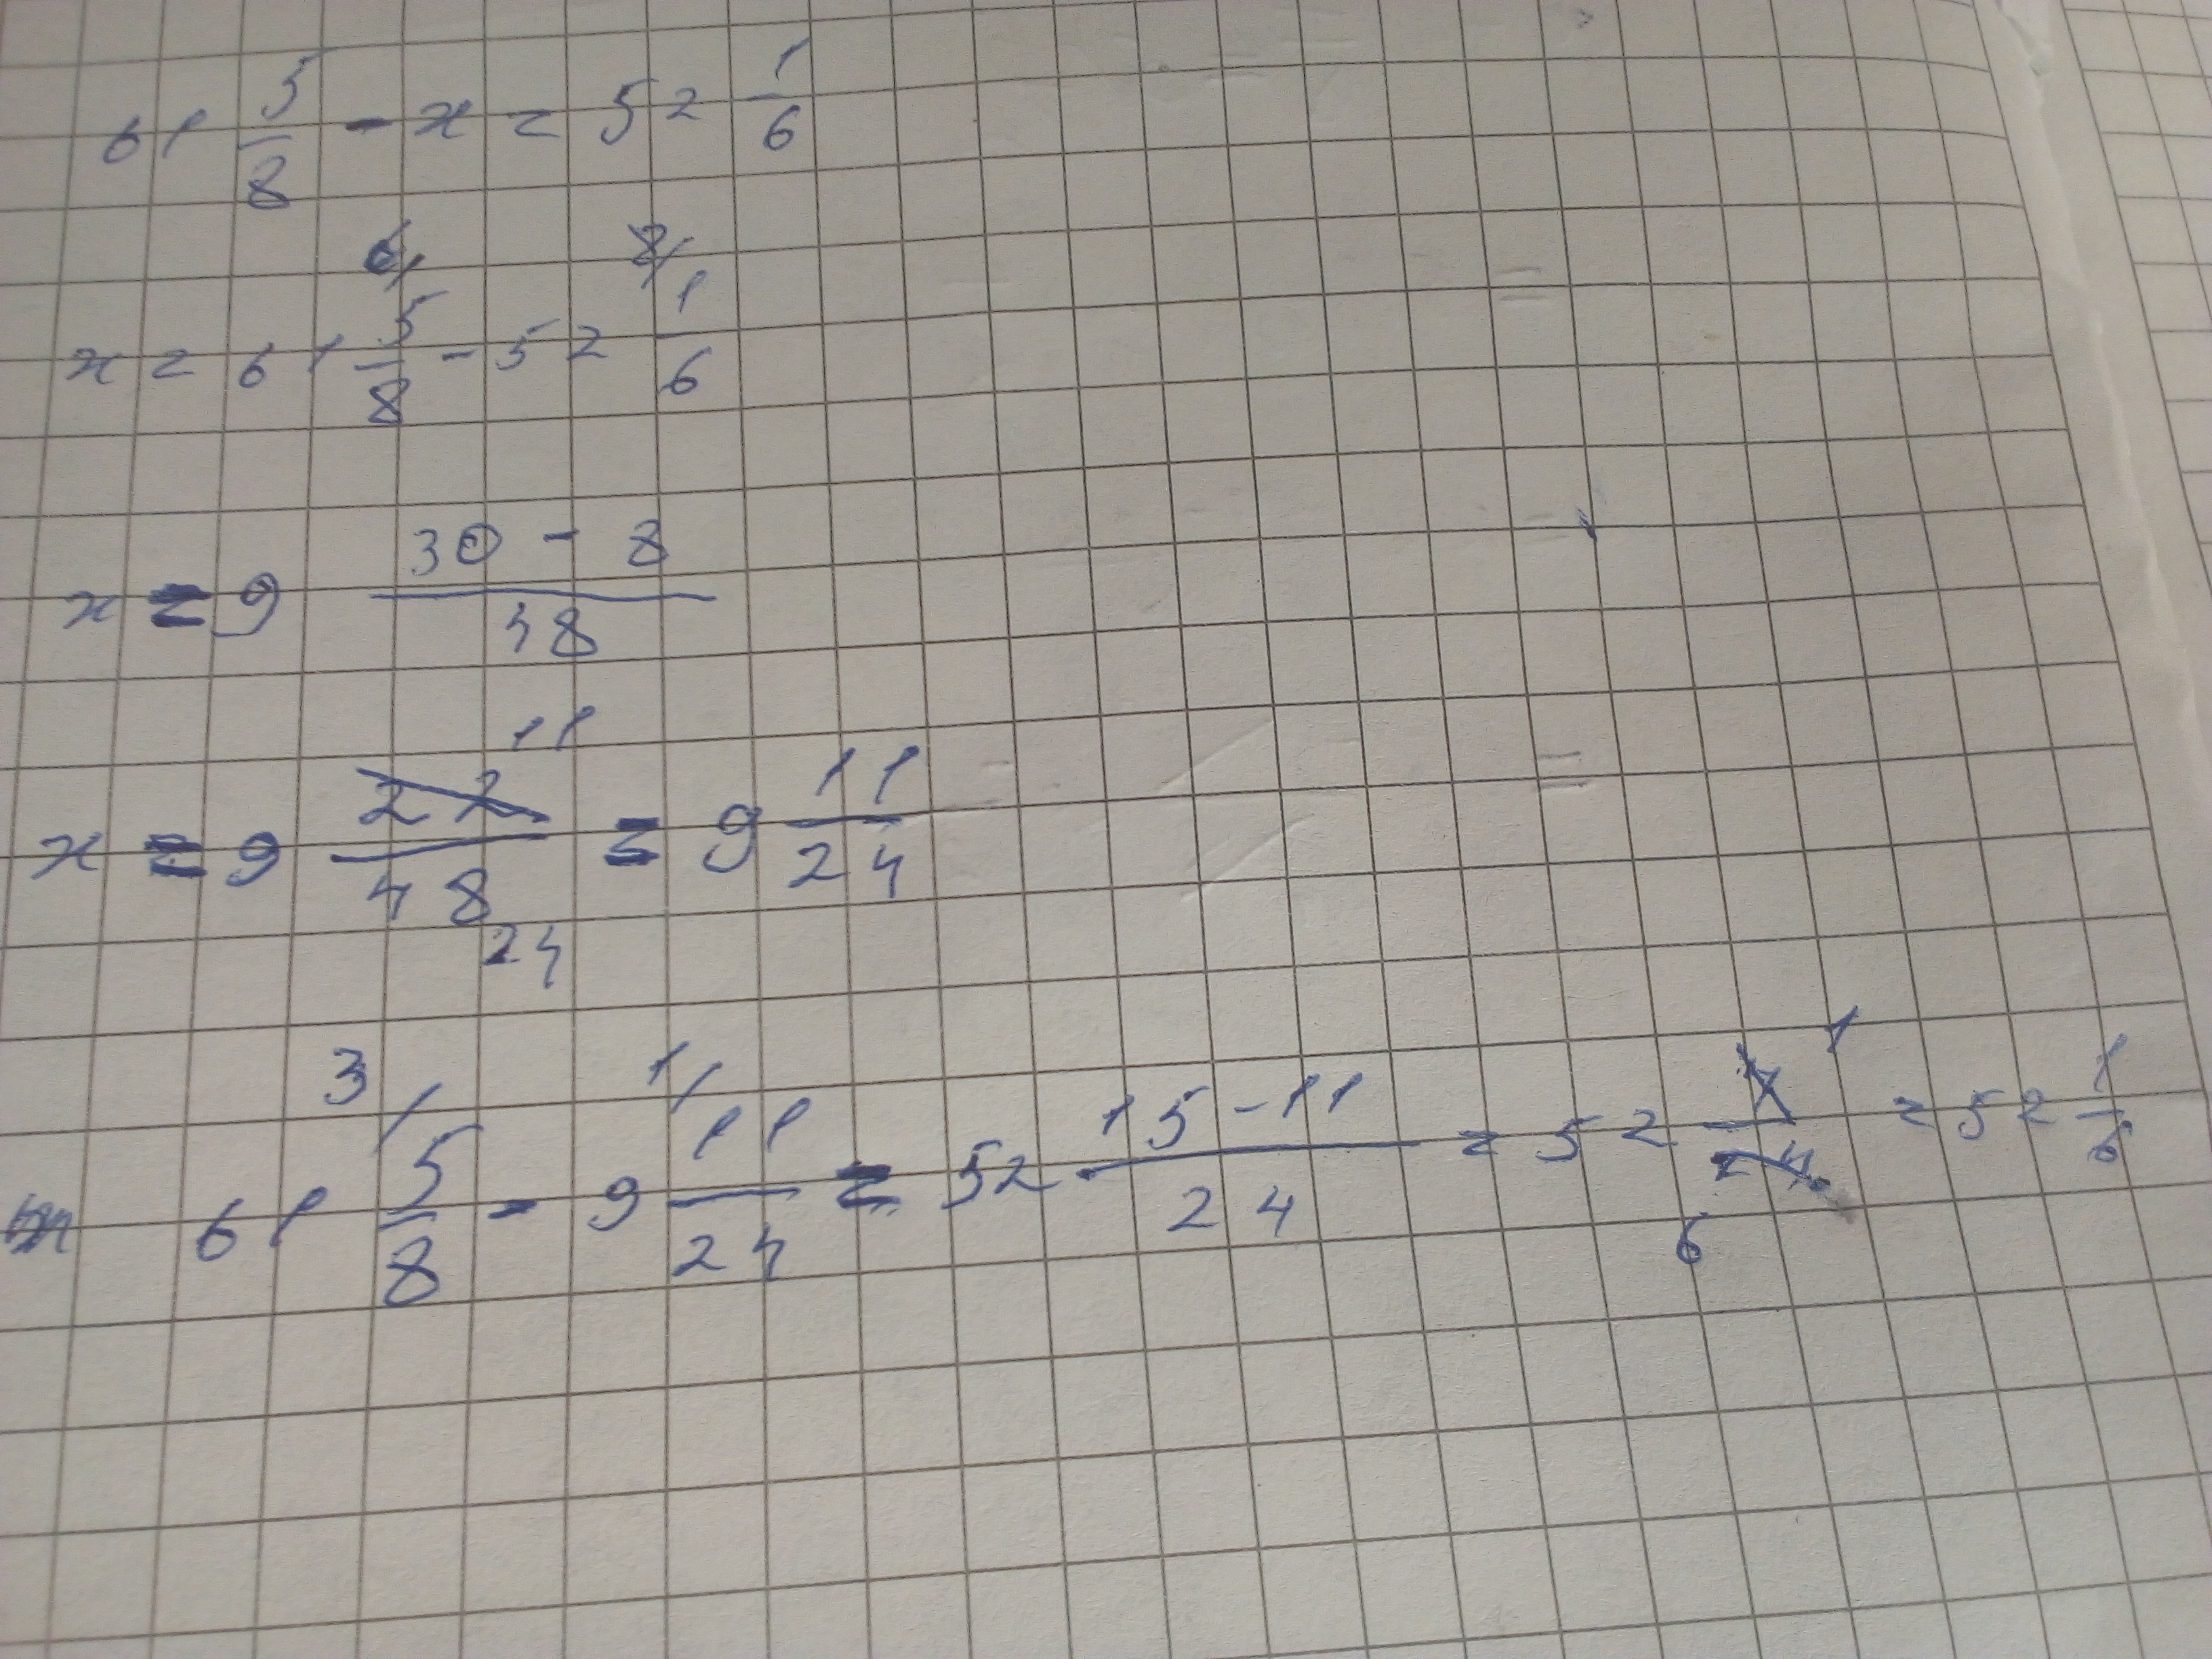 61 5/8 - x = 52 1/6
x = 61 6/ 5/8 - 52 8/ 1/6
x = 9 (30 - 8)/48
x = 9 22/48 11 24 = 9 11/24
61 3/ 5/8 - 9 1/ 11/24 = 52 (15 - 11)/24 = 52 4/24 1 6 = 52 1/6